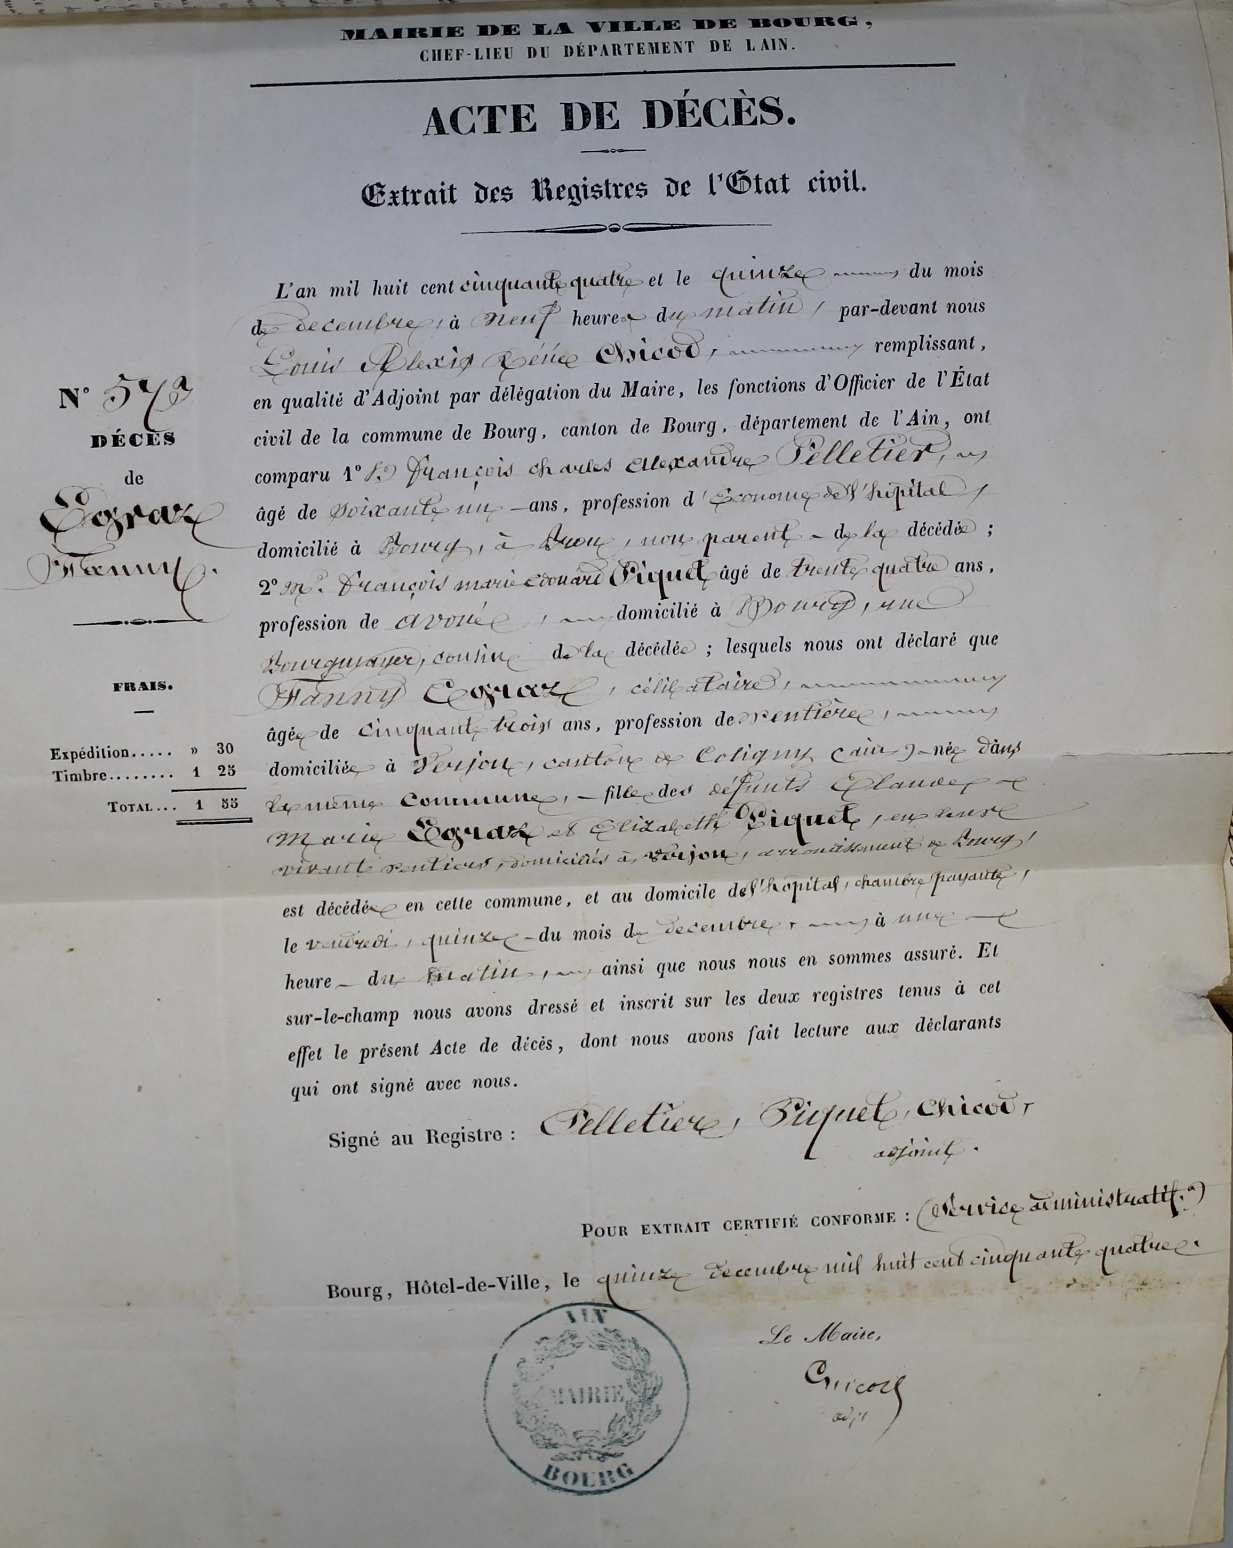 MAIRIE DE LA VILLE DE BOURG,
CHEF-LIEU DU DÉPARTEMENT DE L'AIN.
ACTE DE DÉCÈS.
Extrait des Registres de l'Etat civil.
L'an mil huit cent cinquante quatre et le quinze du mois
de decembre, à neuf heures du matin, par-devant nous
Louis Alexis Réné Chicod, remplissant,
en qualité d'Adjoint par délégation du Maire, les fonctions d'Officier de l'État
civil de la commune de Bourg, canton de Bourg, département de l'Ain, ont
comparu 1° Sr. François Charles Alexandre Pelletier,
âgé de soixante un ans, profession d'Econome de l'hôpital,
domicilié à Bourg, à Brou, non parent de la décédée ;
2° Mr. François Marie Edouard Piquet âgé de trente quatre ans,
profession de avoué, domicilié à Bourg, rue
Bourgmayer, cousin de la décédée ; lesquels nous ont déclaré que
Fanny Egraz, célibataire,
âgée de cinquante trois ans, profession de rentière,
domiciliée à Verjon, canton de Coligny (ain) née dans
la même commune, fille des défunts Claude
Marie Egraz et Elizabeth Piquet, en leur
vivant rentiers, domiciliés à Verjon, arrondissement de Bourg,
est décédée en cette commune, et au domicile de l'hôpital, chambre payante,
le vendredi, quinze du mois de decembre, à une
heure du matin, ainsi que nous nous en sommes assuré. Et
sur-le-champ nous avons dressé et inscrit sur les deux registres tenus à cet
effet le présent Acte de décès, dont nous avons fait lecture aux déclarants
qui ont signé avec nous.
Signé au Registre : Pelletier, Piquet, Chicod,
adjoint.
POUR EXTRAIT CERTIFIÉ CONFORME : (Service administratif.)
Bourg, Hôtel-de-Ville, le quinze decembre mil huit cent cinquante quatre.
Le Maire,
Chicod
adjt
N°
DÉCÈS
de
Egraz
Fanny.
FRAIS.
Expédition..... » 30
Timbre........ 1 25
TOTAL... 1 55
AIN
MAIRIE
BOURG